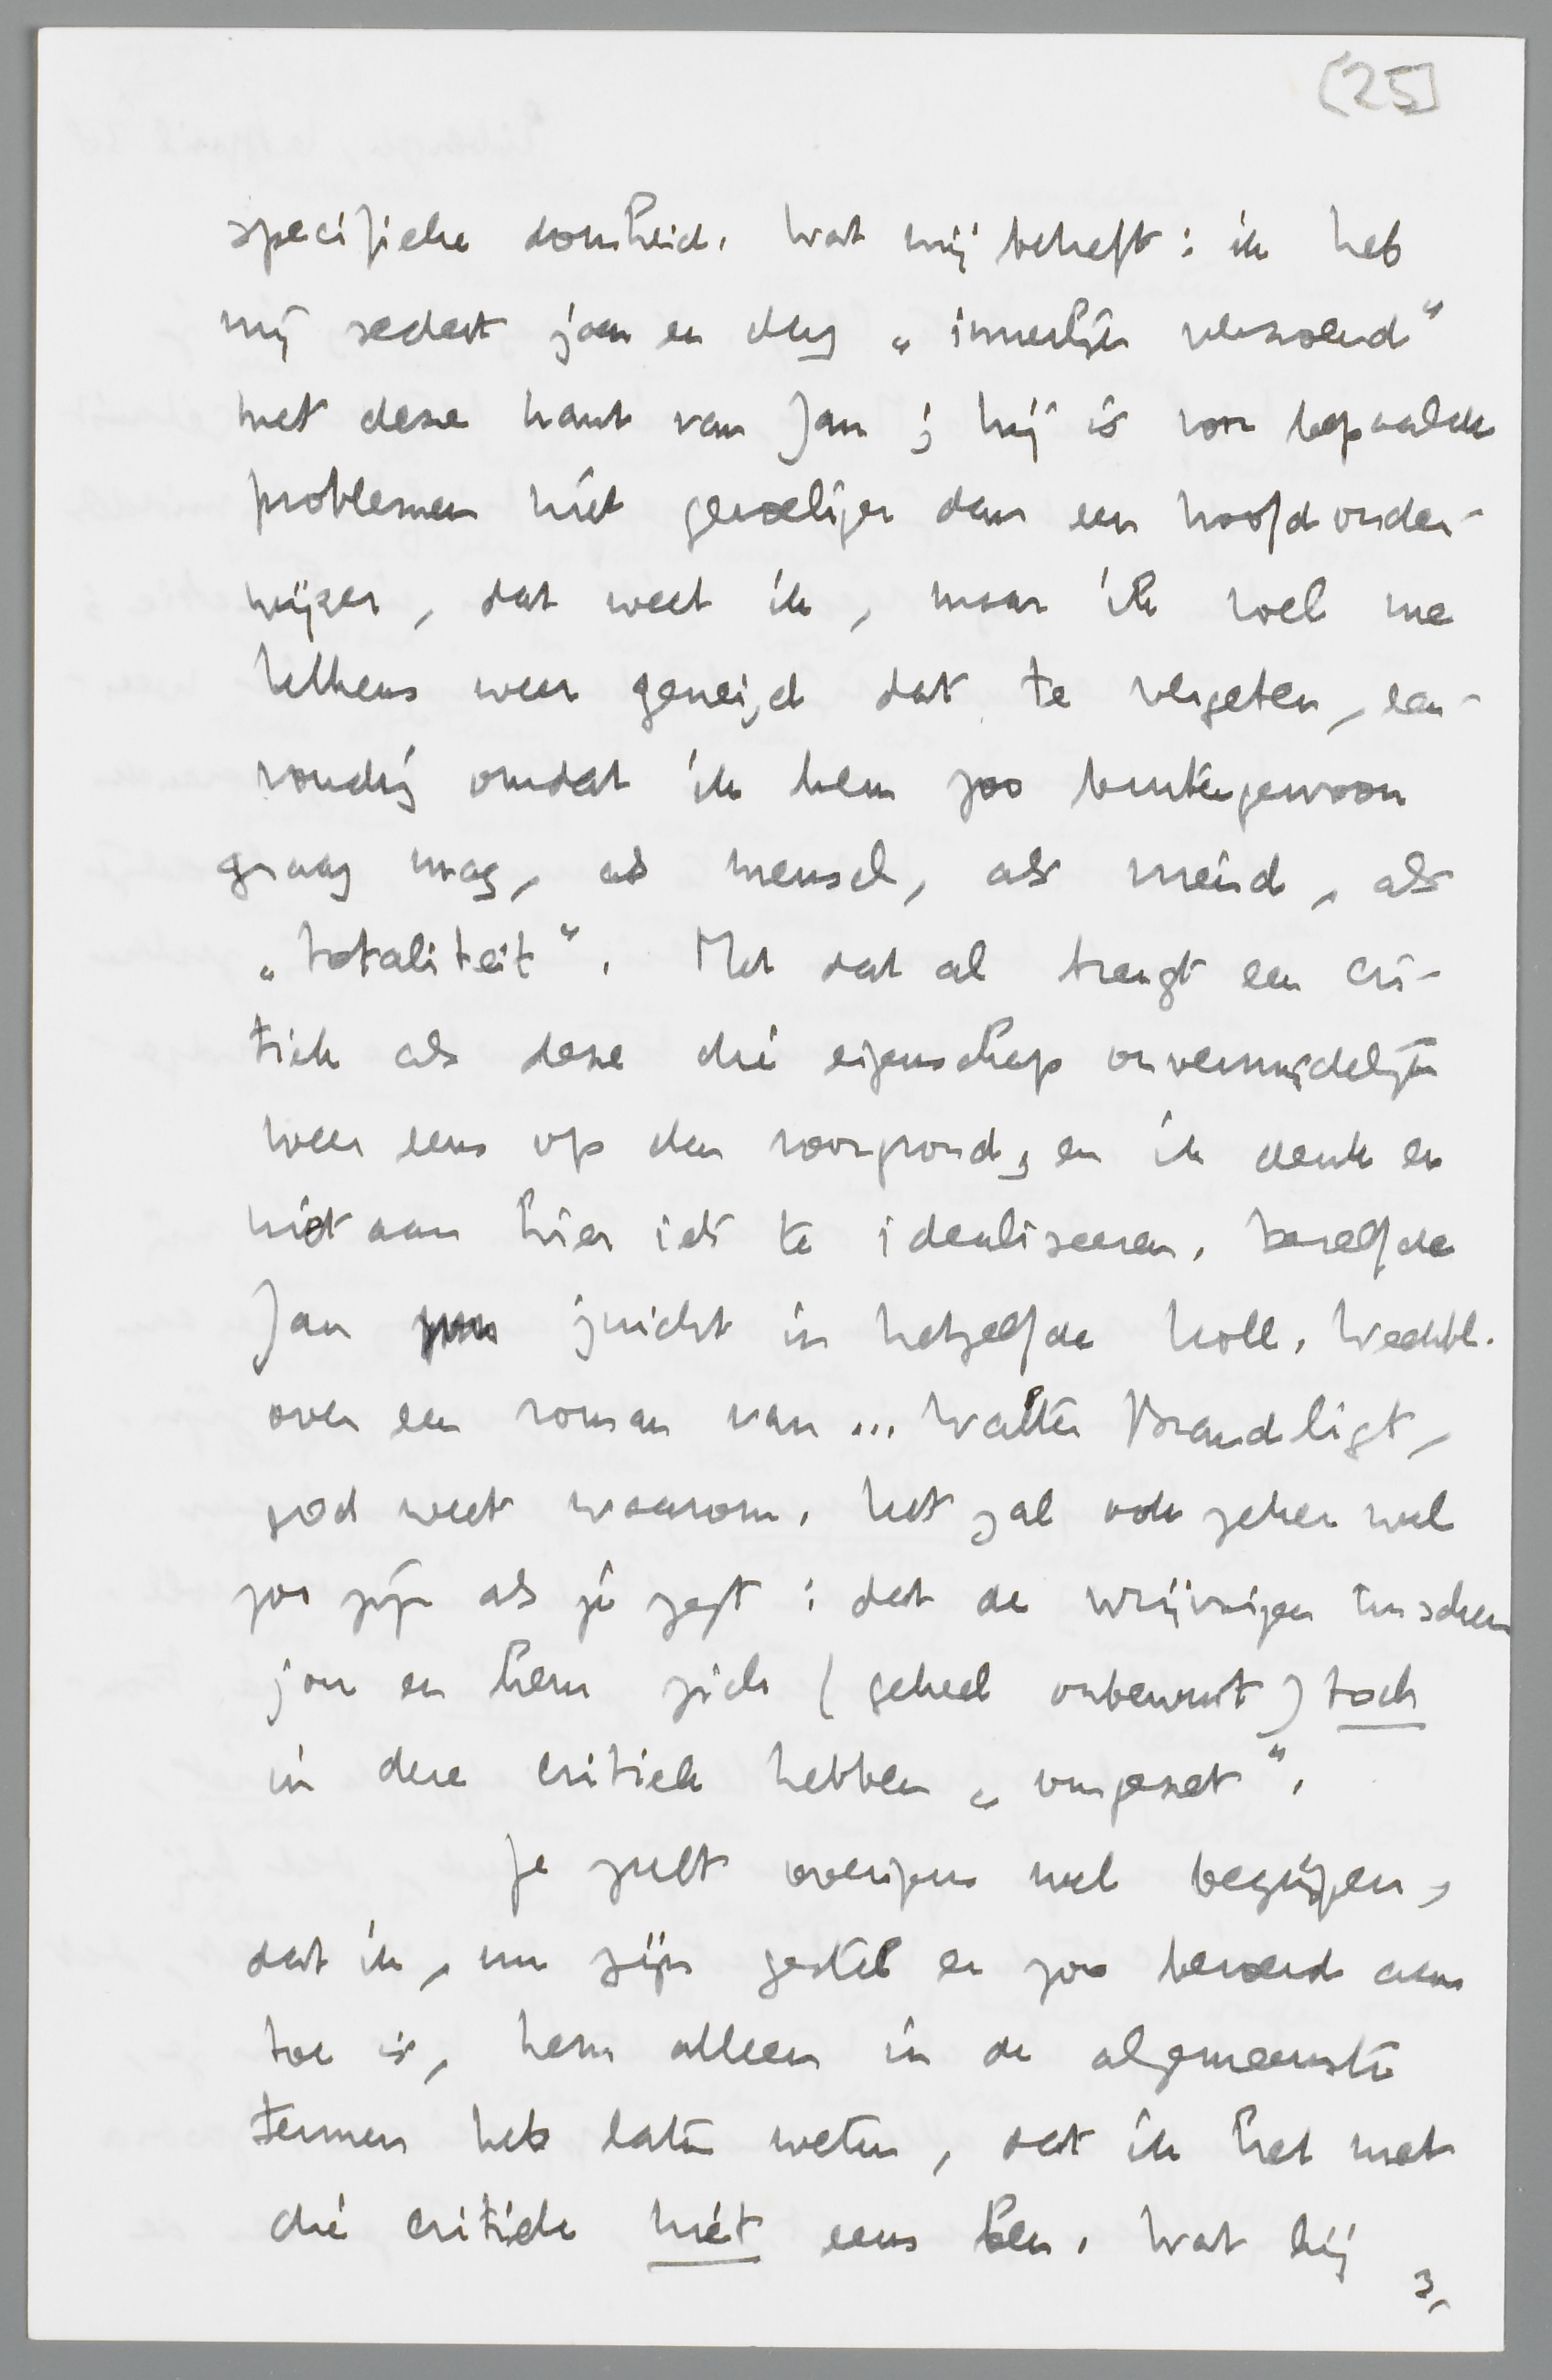 (25]
specifieke domheid. Wat mij betreft: ik heb
mij sedert jaar en dag „innerlijk verzoend”
met deze kant van Jan; hij is voor bepaalde
problemen niet gevoeliger dan een hoofdonder-
wijzer, dat weet ik, maar ik voel me
telkens weer geneigd dat te vergeten, een-
voudig omdat ik hem zoo buitengewoon
graag mag, als mensch, als vriend, als
„totaliteit”. Met dat al brengt een cri-
tiek als deze die eigenschap onvermijdelijk
weer eens op den voorgrond, en ik denk er
niet aan hier iets te idealiseeren. Dezelfde
Jan juicht in hetzelfde Holl. Weekbl.
over een roman van ... Walter Brandligt,
god weet waarom. Het zal ook zeker wel
zoo zijn als je zegt: dat de wrijvingen tusschen
jou en hem zich (geheel onbewust) toch
in deze critiek hebben „omgezet”.
Je zult overigens wel begrijpen,
dat ik, nu zijn gestel er zoo beroerd aan
toe is, hem alleen in de algemeenste
termen heb laten weten, dat ik het met
die critiek niet eens ben. Wat hij